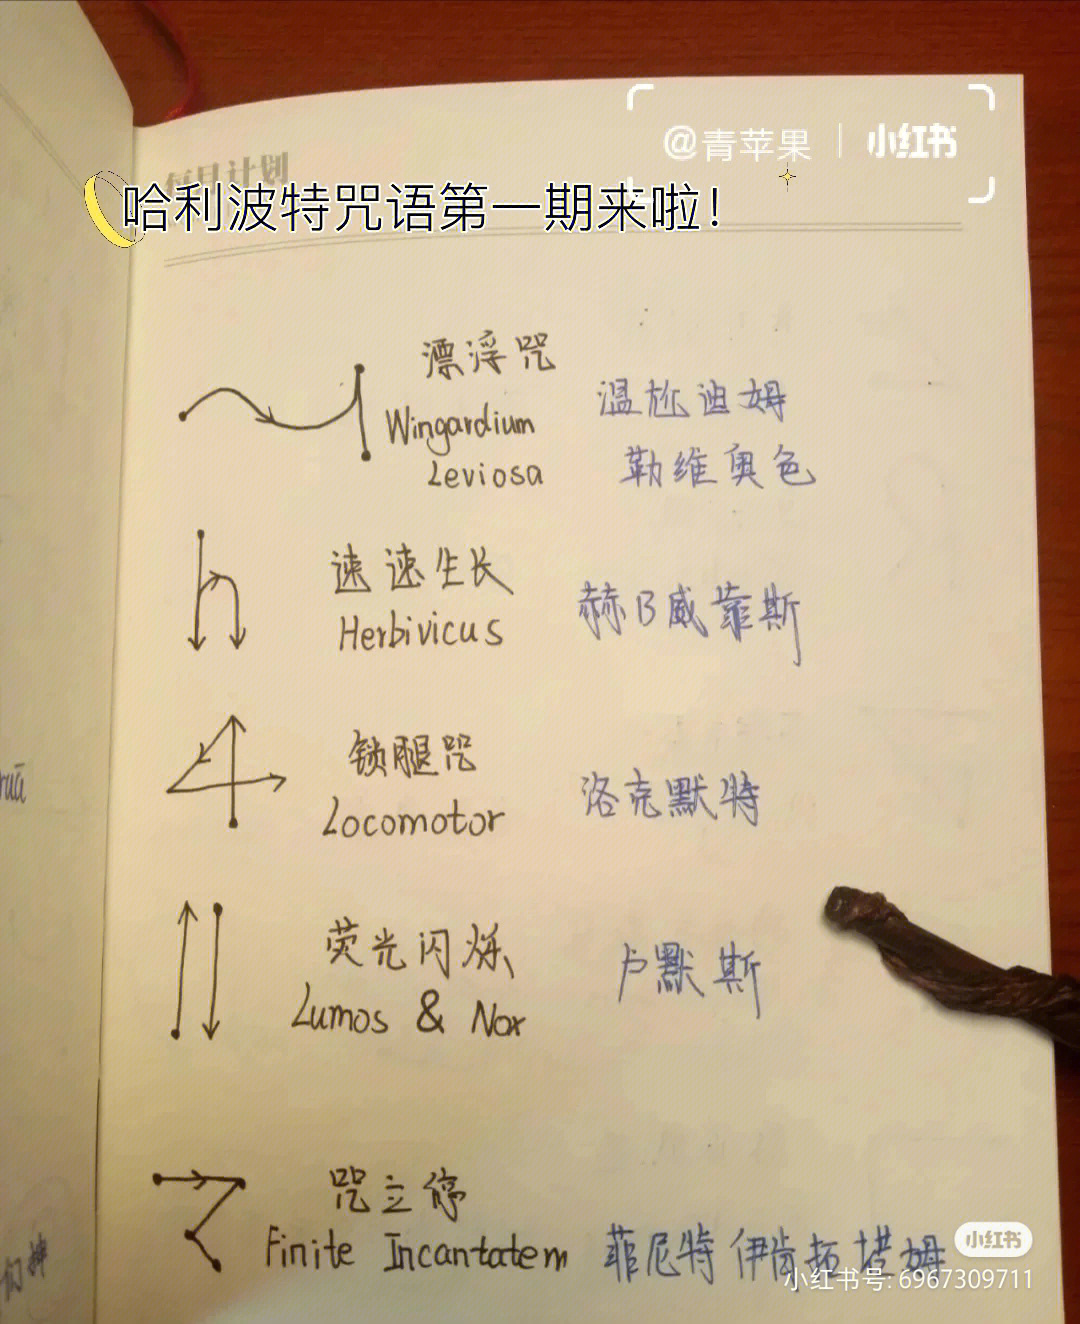 @青苹果 | 小红书
每日计划
哈利波特咒语第一期来啦!
漂浮咒
Wingardium
Leviosa
温尬迪姆
勒维奥色
速速生长
Herbivicus
赫B威靠斯
锁腿咒
Locomotor
洛克默特
荧光闪烁
Lumos & Nox
卢默斯
咒立停
Finite Incantatem
菲尼特 伊肯拓塔姆
小红书
小红书号: 6967309711
ruā
们神